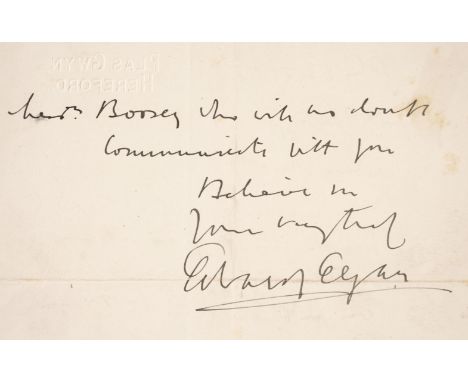 PLAS GWYN
HEREFORD
Messrs Boosey who will no doubt
communicate with you
Believe me
Yours very truly
Edward Elgar